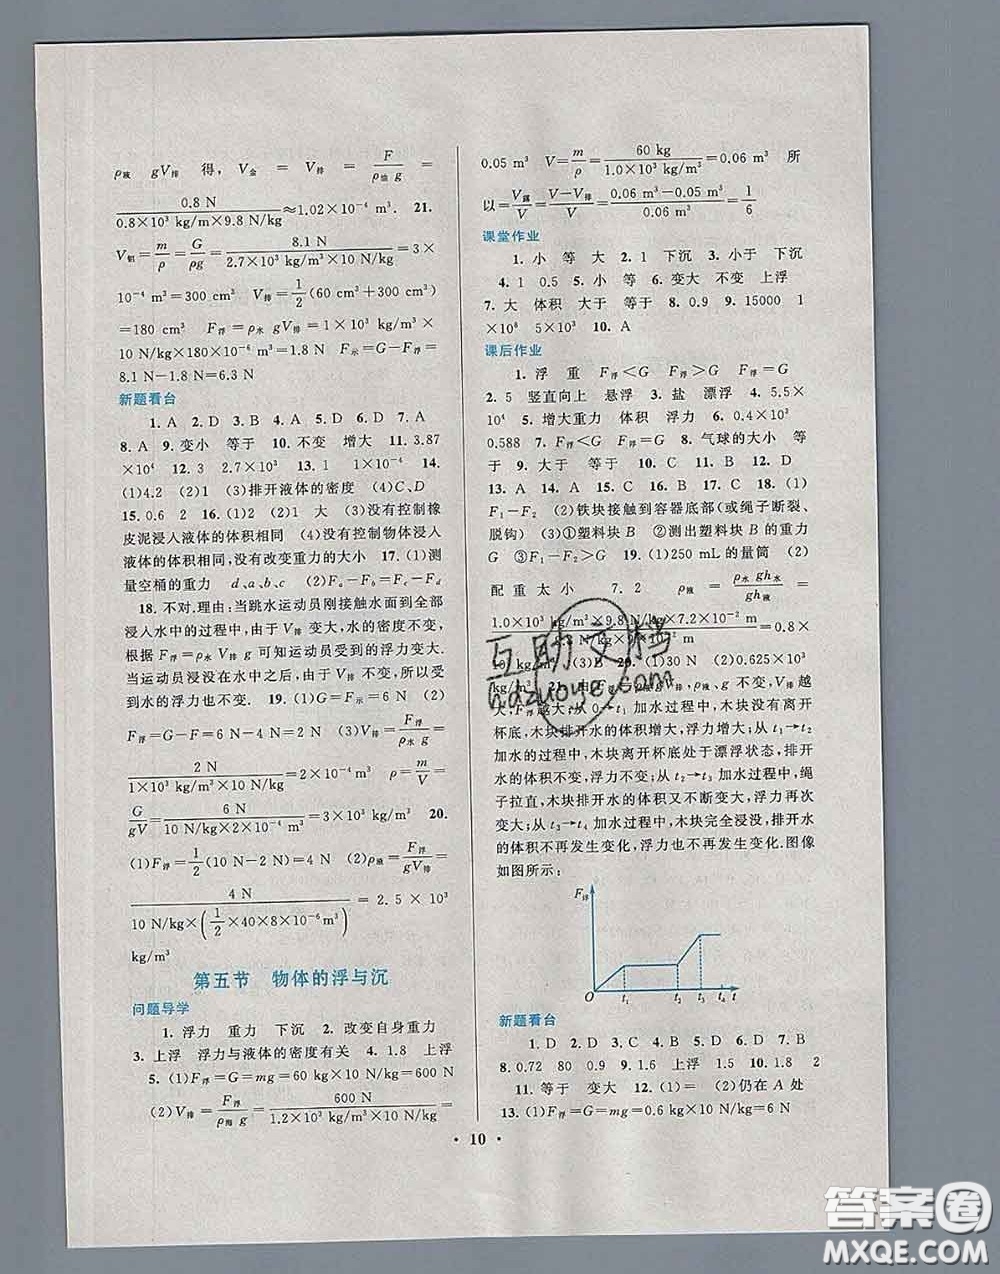 ρ液 gV排 得, V金 = V排 = F/(ρ油 g) =
0.8 N/(0.8×10³ kg/m×9.8 N/kg)≈1.02×10⁻⁴ m³. 21.
V铝=m/ρ=G/(ρg)=8.1 N/(2.7×10³ kg/m³×10 N/kg)=3×
10⁻⁴ m³=300 cm³ V排=1/2(60 cm³+300 cm³)
=180 cm³ F浮=ρ水 gV排=1×10³ kg/m³×
10 N/kg×180×10⁻⁶ m³=1.8 N F示=G-F浮=
8.1 N-1.8 N=6.3 N
新题看台
1. A 2. D 3. B 4. A 5. D 6. D 7. A
8. A 9. 变小 等于 10. 不变 增大 11. 3.87
×10⁴ 12. 3 2.7×10³ 13. 1 1×10⁻⁴ 14.
(1)4.2 (2)1 (3)排开液体的密度 (4)C、D
15. 0.6 2 16. (1)2 (2)1 大 (3)没有控制橡
皮泥浸入液体的体积相同 (4)没有控制物体浸入
液体的体积相同,没有改变重力的大小 17. (1)测
量空桶的重力 d、a、b、c (2)Fₐ-F_b=F_c-F_d
18. 不对.理由:当跳水运动员刚接触水面到全部
浸入水中的过程中,由于 V排 变大,水的密度不变,
根据 F浮=ρ水 V排 g 可知运动员受到的浮力变大.
当运动员浸没在水中之后,由于 V排 不变,所以受
到水的浮力也不变. 19. (1)G=F示=6 N (2)
F浮=G-F=6 N-4 N=2 N (3)V排=F浮/(ρ水 g)=
2 N/(1×10³ kg/m³×10 N/kg)=2×10⁻⁴ m³ ρ=m/V=
G/gV=6 N/(10 N/kg×2×10⁻⁴ m³)=3×10³ kg/m³ 20.
(1)F浮=1/2(10 N-2 N)=4 N (2)ρ液=F浮/(gV排)=
4 N/(10 N/kg×(1/2×40×8×10⁻⁶m³)) = 2.5 × 10³
kg/m³
第五节 物体的浮与沉
问题导学
1. 浮力 重力 下沉 2. 改变自身重力
3. 上浮 浮力与液体的密度有关 4. 1.8 上浮
5. (1)F浮=G=mg=60 kg×10 N/kg=600 N
(2)V排=F浮/(ρ海 g)=600 N/(1.2×10³ kg/m³×10 N/kg)=
0.05 m³ V=m/ρ=60 kg/(1.0×10³ kg/m³)=0.06 m³ 所
以=V露/V=(V-V排)/V=(0.06 m³-0.05 m³)/(0.06 m³)=1/6
课堂作业
1. 小 等 大 2. 1 下沉 3. 小于 下沉
4. 1 0.5 5. 小 等 6. 变大 不变 上浮
7. 大 体积 大于 等于 8. 0.9 9. 15000 1
×10⁸ 5×10³ 10. A
课后作业
1. 浮 重 F浮<G F浮>G F浮=G
2. 5 竖直向上 悬浮 3. 盐 漂浮 4. 5.5×
10⁴ 5. 增大重力 体积 浮力 6. 0.4×10³
0.588 7. F浮<G F浮=G 8. 气球的大小 等
于 9. 大于 等于 10. C 11. B 12. D
13. A 14. A 15. C 16. B 17. C 18. (1)
F₁-F₂ (2)铁块接触到容器底部(或绳子断裂、
脱钩) (3)①塑料块 ②测出塑料块 B 的重力
G ③F₁-F₂>G 19. (1)250 mL的量筒 (2)
配重太小 7.2 ρ液 = ρ水 gh水/gh液 =
1.0×10³ kg/m³×9.8 N/kg×7.2×10⁻² m =0.8×
kg/m³ (3)B 20. (1)30 N (2)0.625×10³
kg/m³ 2 由 ρ液、g 不变,V排 越
大,F浮越大;从 0→t₁ 加水过程中,木块没有离开
杯底,木块排开水的体积增大,浮力增大;从 t₁→t₂
加水的过程中,木块离开杯底处于漂浮状态,排开
水的体积不变,浮力不变;从 t₂→t₃ 加水过程中,绳
子拉直,木块排开水的体积又不断变大,浮力再次
变大;从 t₃→t₄ 加水过程中,木块完全浸没,排开水
的体积不再发生变化,浮力也不再发生变化.图像
如图所示:
F浮
O t₁ t₂ t₃ t₄ t
新题看台
1. D 2. D 3. C 4. C 5. D 6. D 7. B
8. 0.72 80 0.9 9. 1.6 上浮 1.5 10. 1.8 2
11. 等于 变大 12. (1)= (2)仍在 A 处
13. (1)F浮=G=mg=0.6 kg×10 N/kg=6 N
· 10 ·
互助文档
hdzuoye.com
答案圈
MXQE.COM